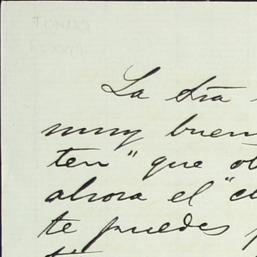 La dra
muy buen
ten" que ob
ahora el "c
te puedes p